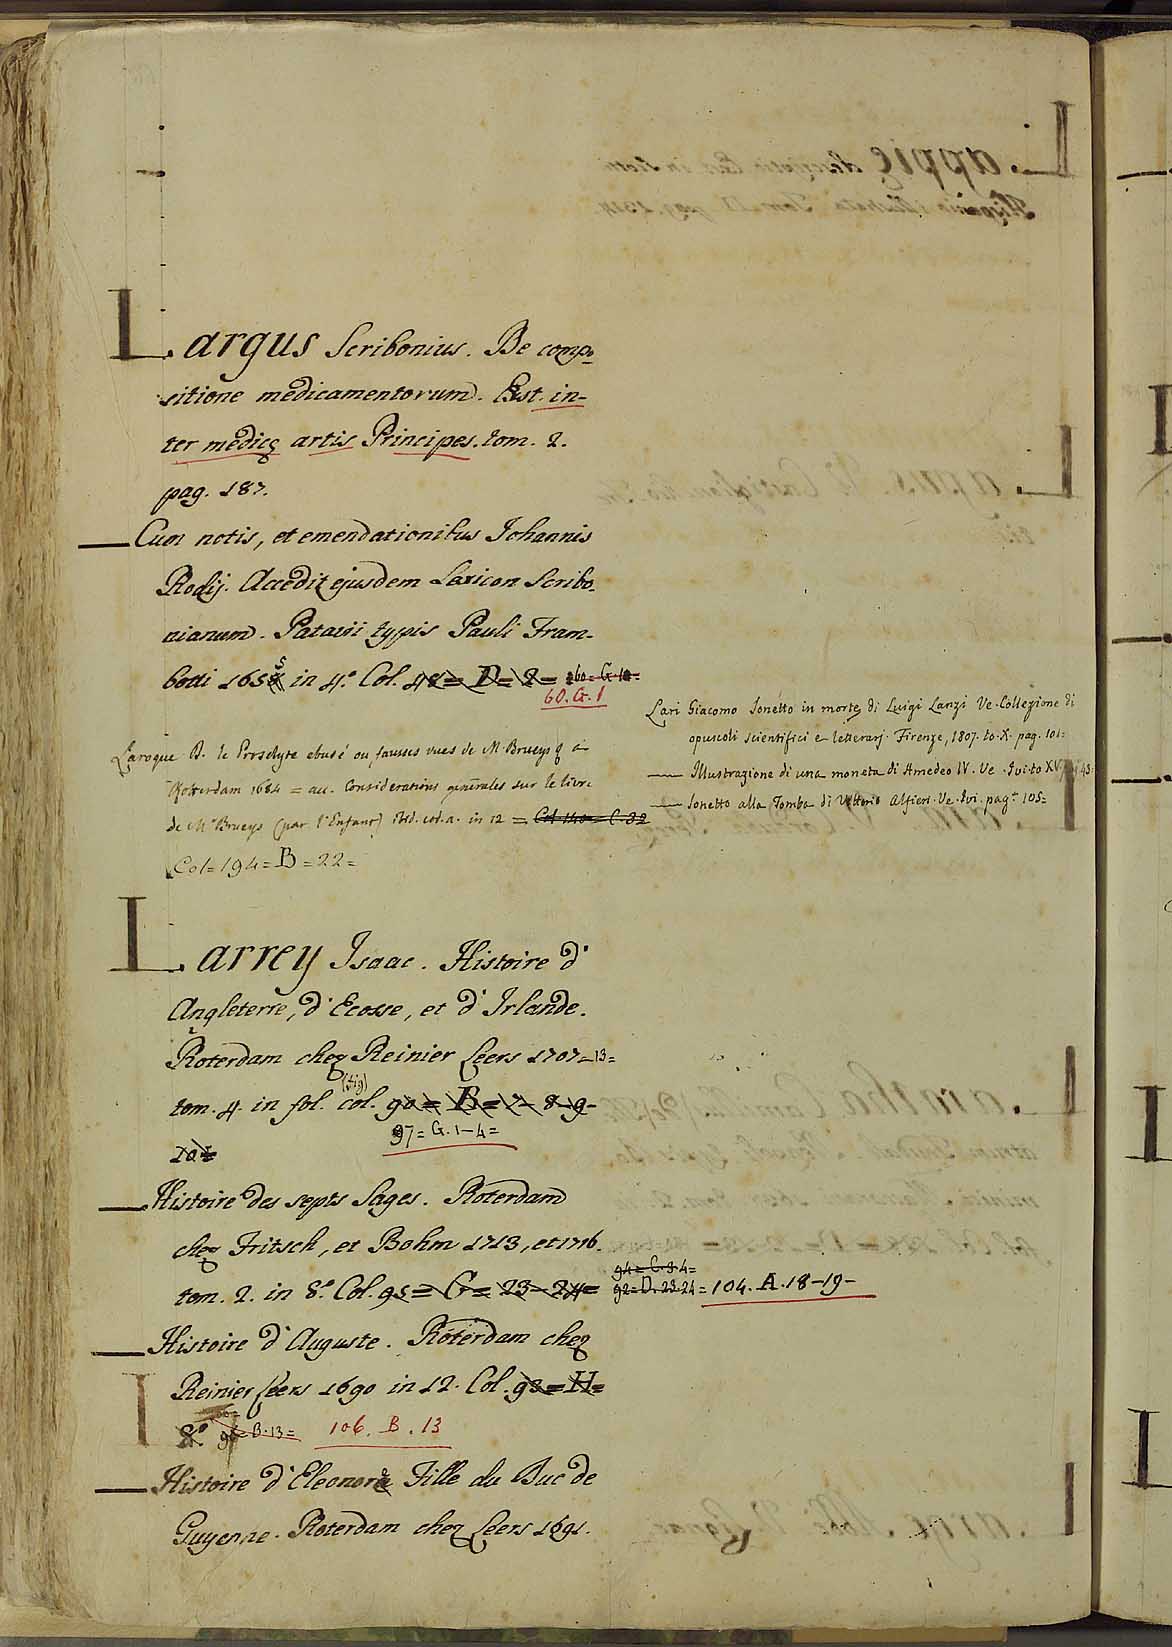 Largus Scribonius. De compo-
sitione medicamentorum. Est in-
ter medicę artis Principes. tom. 2.
pag. 187.
Cum notis, et emendationibus Johannis
Rodij. Accedit ejusdem Lexicon Scribo-
nianum. Patavii typis Pauli Fram-
botti 1655 in 4.° Col. 48= D= 2= 160= G
60. G. 1
Laroque D. le Proselyte abusé ou fausses vues de M. Brueys
Rotterdam 1684 = acc. Considerations generales sur le livre
de M.r Brueys (par l'Enfant) Ibid. eod. a. in 12 = Col 140= C. 32
Col=194=B=22=
Lari Giacomo Sonetto in morte di Luigi Lanzi Ve. Collezione di
opuscoli scientifici e letterarj. Firenze, 1807. to. X. pag. 101=
Illustrazione di una moneta di Amedeo IV. Ve. Ivi. to XV. pag 43=
Sonetto alla Tomba di Vittorio Alfieri. Ve. Ivi. pag.a 105=
Larrey Isaac. Histoire d'
Angleterre, d'Ecosse, et d'Irlande.
Roterdam chez Reinier Leers 1707=13=
(fig)
tom. 4. in fol. Col. 90= B= 7- 8-9-
10=
97= G. 1-4=
Histoire des septs Sages. Roterdam
chez Fritsch, et Bohm 1713, et 1716.
94= C. 3 4=
tom. 2. in 8.° Col. 95= G= 23-24= 92= D. 23 24= 104. A. 18-19-
Histoire d'Auguste. Roterdam chez
Reinier Leers 1690 in 12. Col. 93= H=
8.° B. 13= 106. B. 13
Histoire d'Eleonore Fille du Duc de
Guyenne. Roterdam chez Leers 1691.